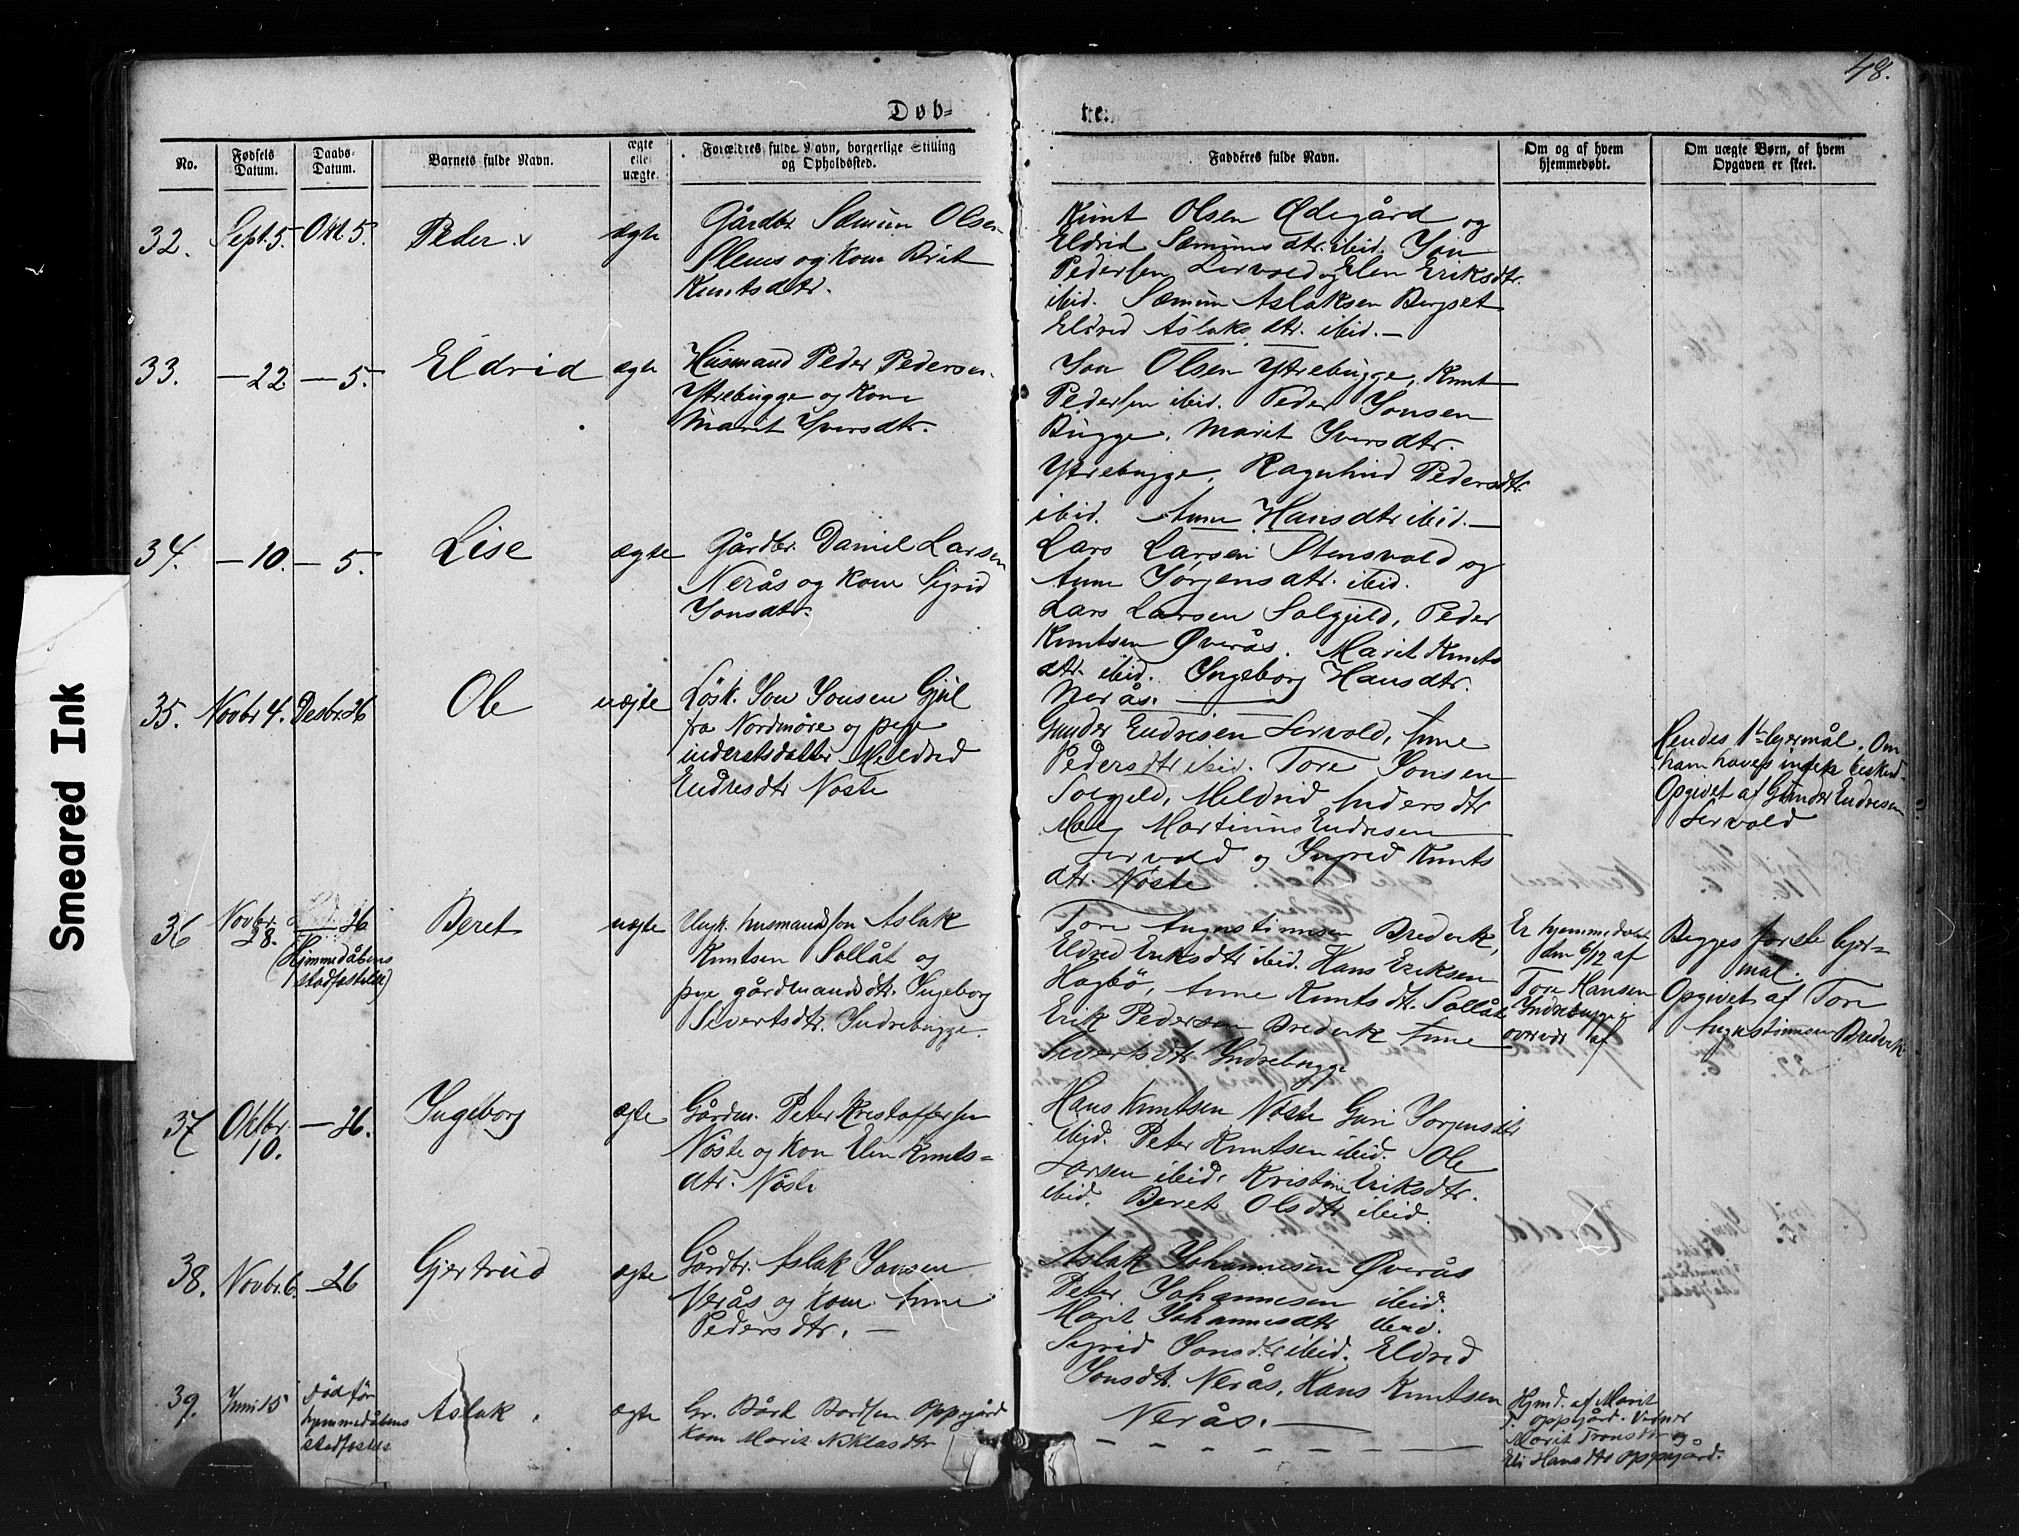 48.
Døb-
te.
No.
Fødsels Datum.
Daabs-Datum.
Barnets fulde Navn.
ægte eller uægte.
Forældres fulde Navn, borgerlige Stilling og Opholdssted.
Fadderes fulde Navn.
Om og af hvem hjemmedøbt.
Om uægte Børn, af hvem Opgaven er skeet.
32. Sept. 5. Okt. 5. Peder ægte
Gårdbr. Sæmun Olsen
og kone Brit
Kuntsdtr.
Knut Olsen Ødegård og
Eldrid Sæmunsdtr. ibid. Jon
Pedersen Lervold og Elen Eriksdtr.
ibid. Sæmun Aslaksen Bergset
Eldred Aslaksdtr. ibid. —
33. — 22 — 5. Eldrid ægte
Husmand Peder Pedersen
Ytrebugge og kone
Marit Iversdtr.
Jon Olsen Ytrebugge, Knut
Pedersen ibid. Peder Jonsen
Bugge, Marit Iversdtr.
Ytrebugge, Ragnhid Pedersdtr.
ibid. Anne Hansdtr ibid. —
34. — 10. — 5. Lise ægte
Gårdbr. Daniel Larsen
Nerås og kone Sigrid
Jonsdtr.
Lars Larsen Stensvold og
Anne Jørgensdtr. ibid.
Lars Larsen Solgjeld, Peder
Knutsen Øverås. Marit Knuts
dtr. ibid. Ingeborg Hansdtr.
Nerås. —
35. Novbr 4. Desbr. 26 Ole uægte
Løsk. Jon Jonsen Gjul
fra Nordmøre og pige
inderstsdatter Meldrid
Endresdtr Nøste
Gunder Endresen Lervold, Anne
Pedersdtr ibid. Tore Jonsen
Solgjeld, Meldrid Andersdtr
Mæ, Martinus Endresen
Lervold og Ingrid Knuts
dtr. Nøste
Hendes 1te lejermål. Om
ham haves ingen besked.
Opgivet af Gunder Endresen
Lervold
36 Novbr. 28. — 26 Beret uægte
(Hjemmedåbens
stadfæstelse)
Ungk. husmandssøn Aslak
Knutsen Sollåt og
pige gårdmandsdtr. Ingeborg
Sivertsdtr. Indrebugge.
Tore Augustinusen Bredvik,
Eldred Eriksdtr ibid. Hans Eriksen
Hagbø, Anne Knutsdtr. Sollåt
Erik Pedersen Bredvik Anne
Sivertsdtr Indrebugge
Er hjemmedøbt
den 6/12 af
Tore Hansen
Indrebugge
af
Begges første lejer-
mål.
Opgivet af Tore
Augustinusen Bredvik
37 Oktbr. 10. — 26. Ingeborg ægte
Gårdm. Peter Kristoffersen
Nøste og kon Elen Knuts=
dtr. Nøste
Hans Knutsen Nøste Guri Jørgensdtr
ibid. Peter Knutsen ibid. Ole
Larsen ibid, Kristine Eriksdtr.
ibid. Beret Olsdtr ibid.
38. Novbr. 6. — 26 Gjertrud ægte
Gårdbr. Aslak Jonsen
Nerås og kone Anne
Pedersdtr. —
Aslak Johannesen Øverås
Peter Johannesen ibid.
Marit Johannesdtr ibid.
Sigrid Jonsdtr ibid. Eldred
Jonsdtr. Nerås, Hans Knutsen
Nerås. —
39. Juni 15 død før
hjemmedåbens
stadfæstelse
Aslak ægte
Gr. Bård Bordsen Oppigård
Kone Marit Niklasdtr
Hjmd. af Marit
J. Oppigård. Vidner
Marit Tronsdtr og
Eli Hansdtr Oppigård.
Smeared Ink